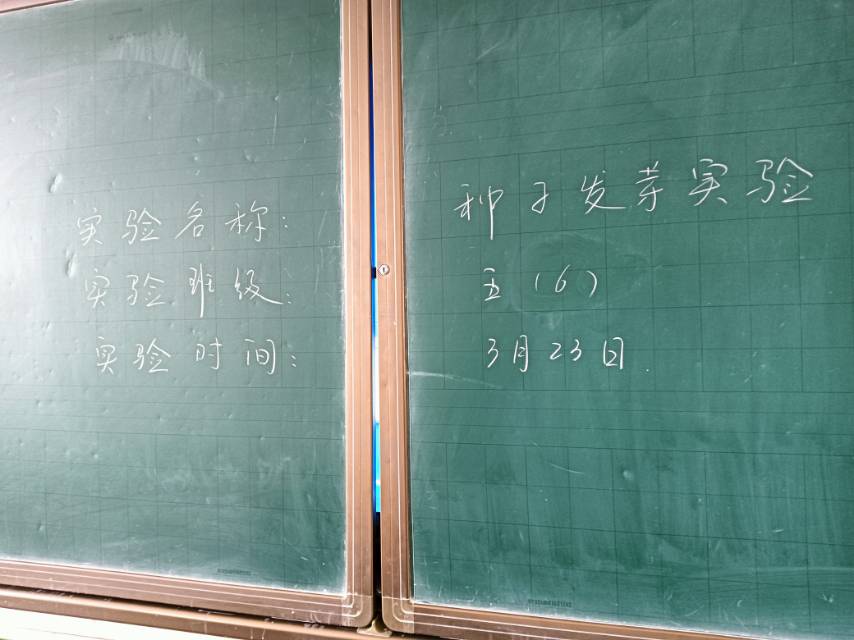 实验名称: 种子发芽实验
实验班级: 五(6)
实验时间: 3月23日.